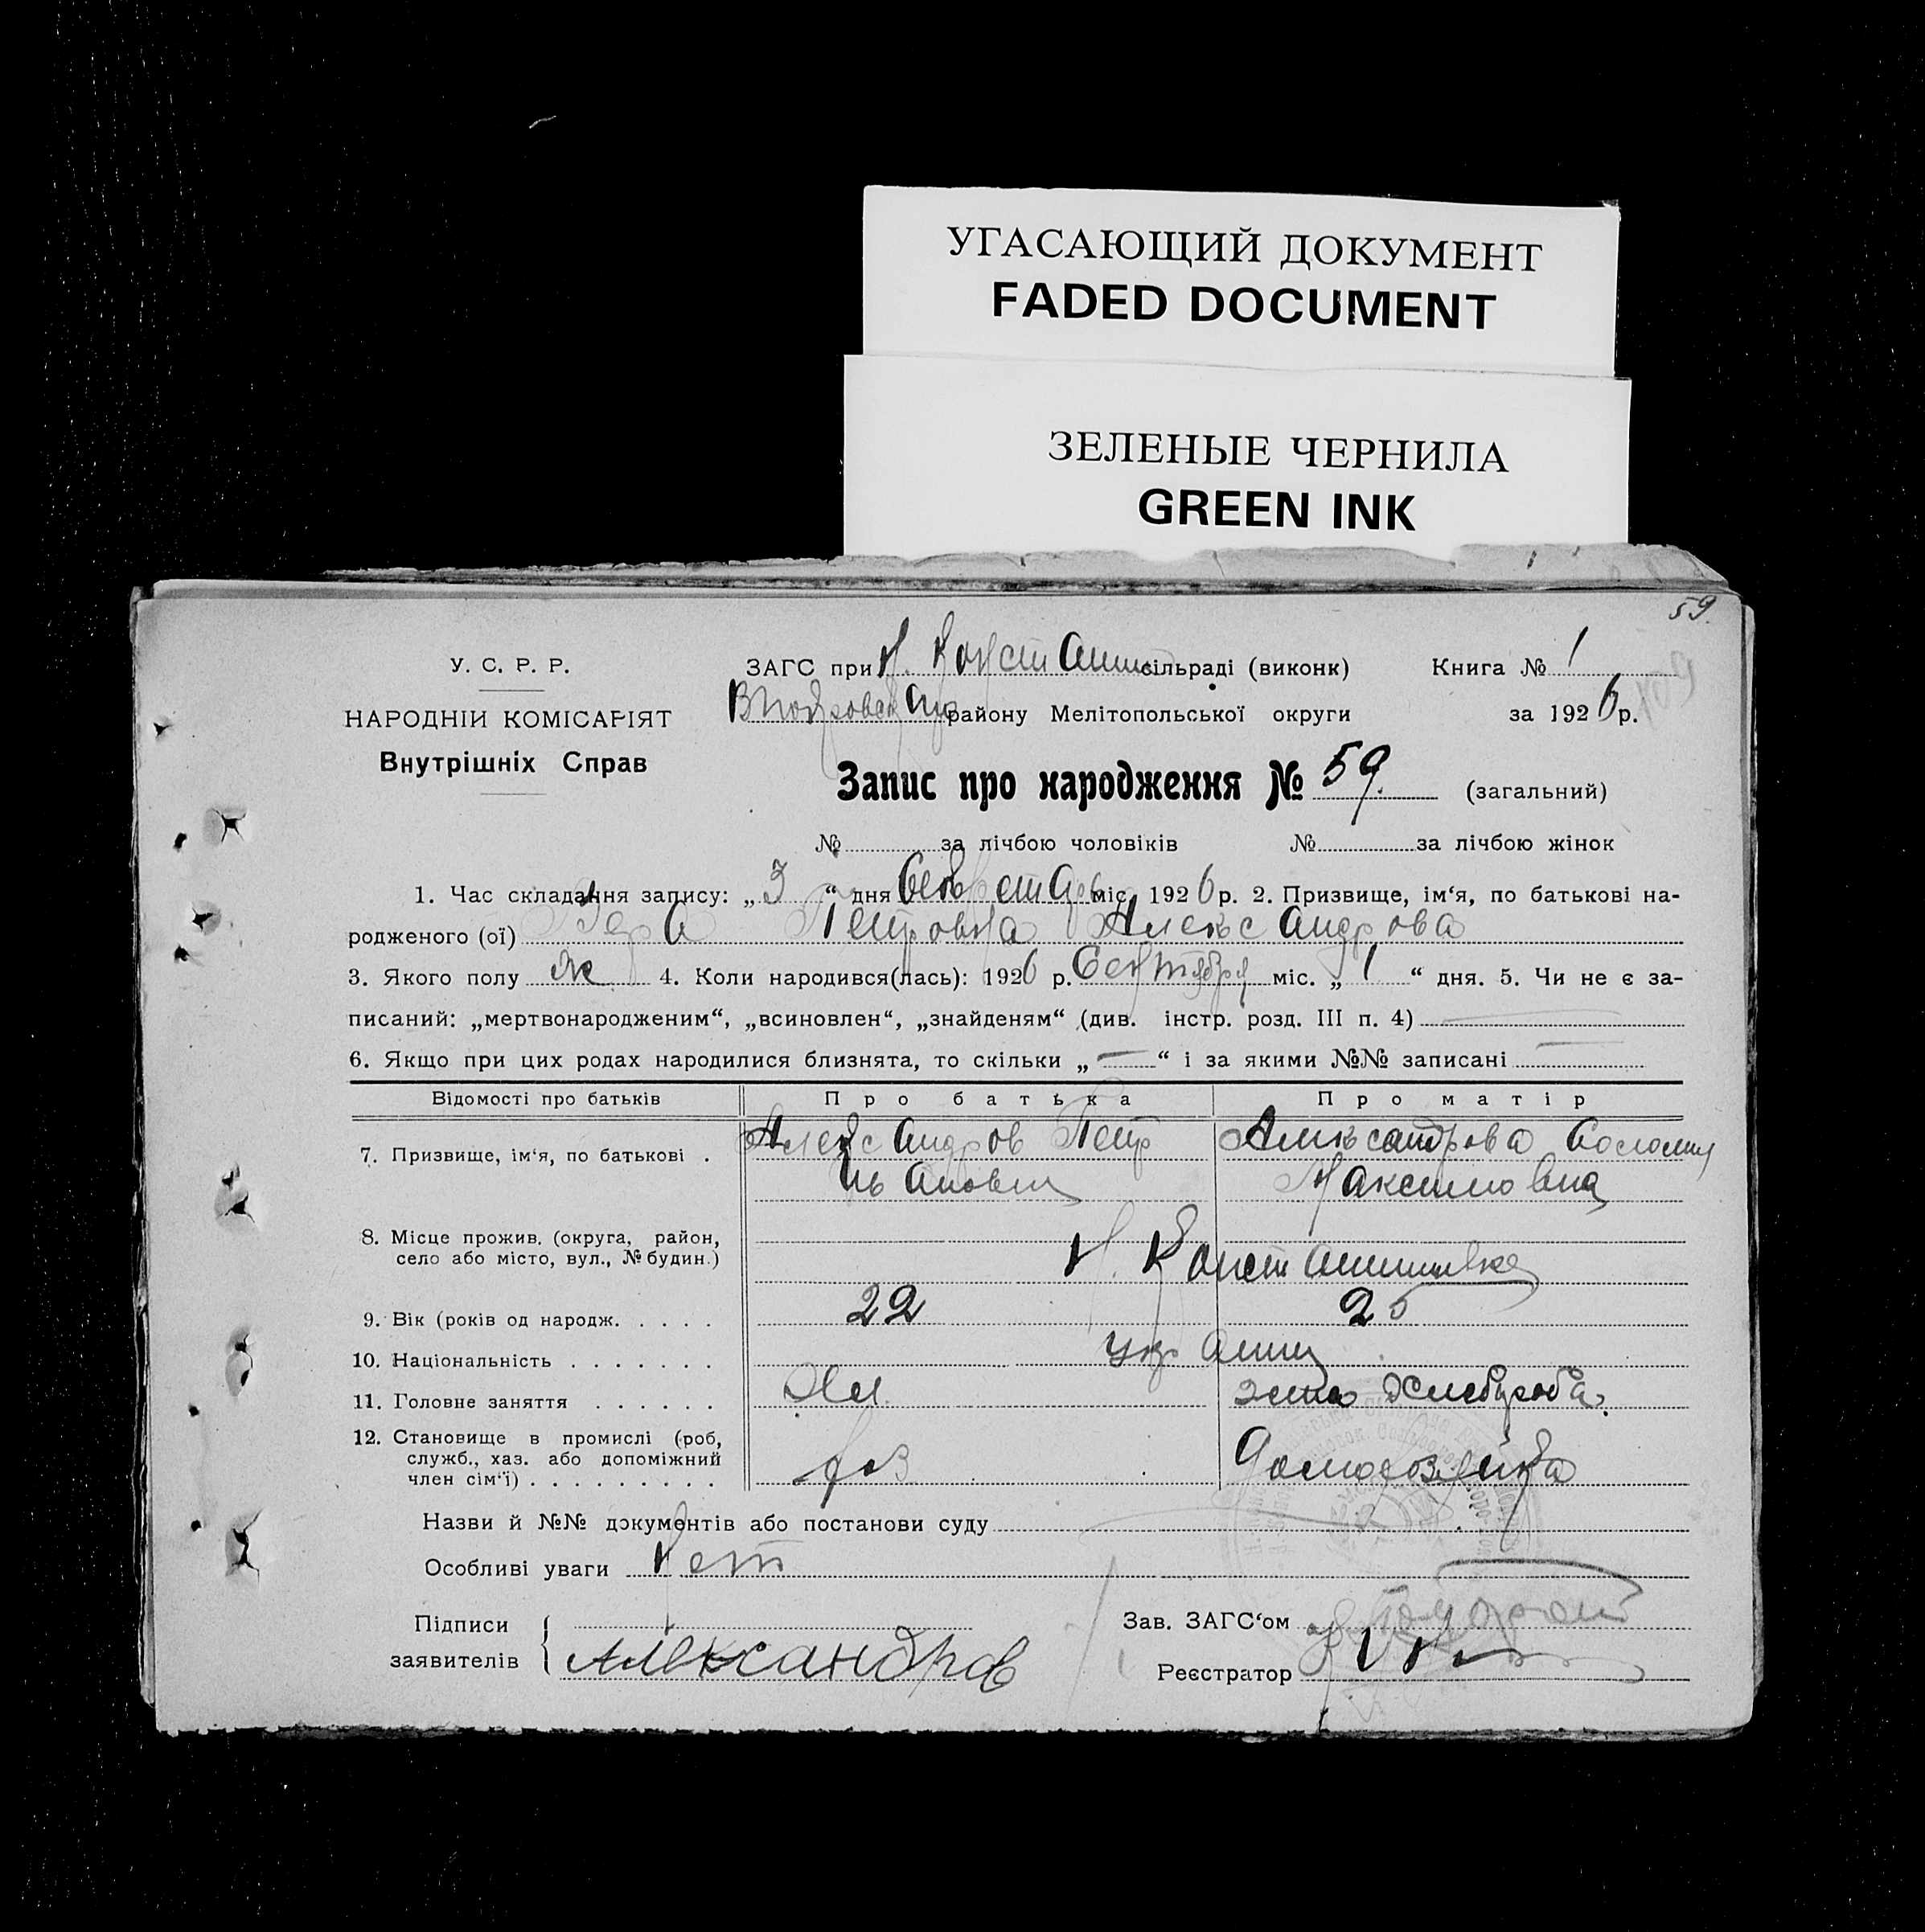 УГАСАЮЩИЙ ДОКУМЕНТ
FADED DOCUMENT
ЗЕЛЕНЫЕ ЧЕРНИЛА
GREEN INK
59.
У. С. Р. Р.
НАРОДНІЙ КОМІСАРІЯТ
Внутрішніх Справ
ЗАГС при Н. Констант сільраді (виконк) Книга № 1
району Мелітопольської округи за 1926 р.
Запис про народження № 59. (загальний)
№ за лічбою чоловіків № за лічбою жінок
1. Час складання запису: „3“ дня міс. 1926 р. 2. Призвище, ім‘я, по батькові на-
родженого (ої) Вера Петровна Александрова
3. Якого полу ж 4. Коли народився(лась): 1926 р. Сентября міс. „1“ дня. 5. Чи не є за-
писаний: „мертвонародженим“, „всиновлен“, „знайденям“ (див. інстр. розд. III п. 4) —
6. Якщо при цих родах народилися близнята, то скільки „—“ і за якими №№ записані —
Відомості про батьків Про батька Про матір
7. Призвище, ім‘я, по батькові . Александров Петр Александрова Соломия
Иванович Максимовна
8. Місце прожив. (округа, район,
село або місто, вул., № будин.) Н. Константиновка
9. Вік (років од народж. . . . . 22 25
10. Національність . . . . . . . украинц
11. Головне заняття . . . . . . Хл. жена хлебороба.
12. Становище в промислі (роб,
служб., хаз. або допоміжний
член сім‘ї) . . . . . . . . . хаз Домохозяйка
Назви й №№ документів або постанови суду
Особливі уваги Нет
Підписи
заявителів Александров
Зав. ЗАГС‘ом
Реєстратор